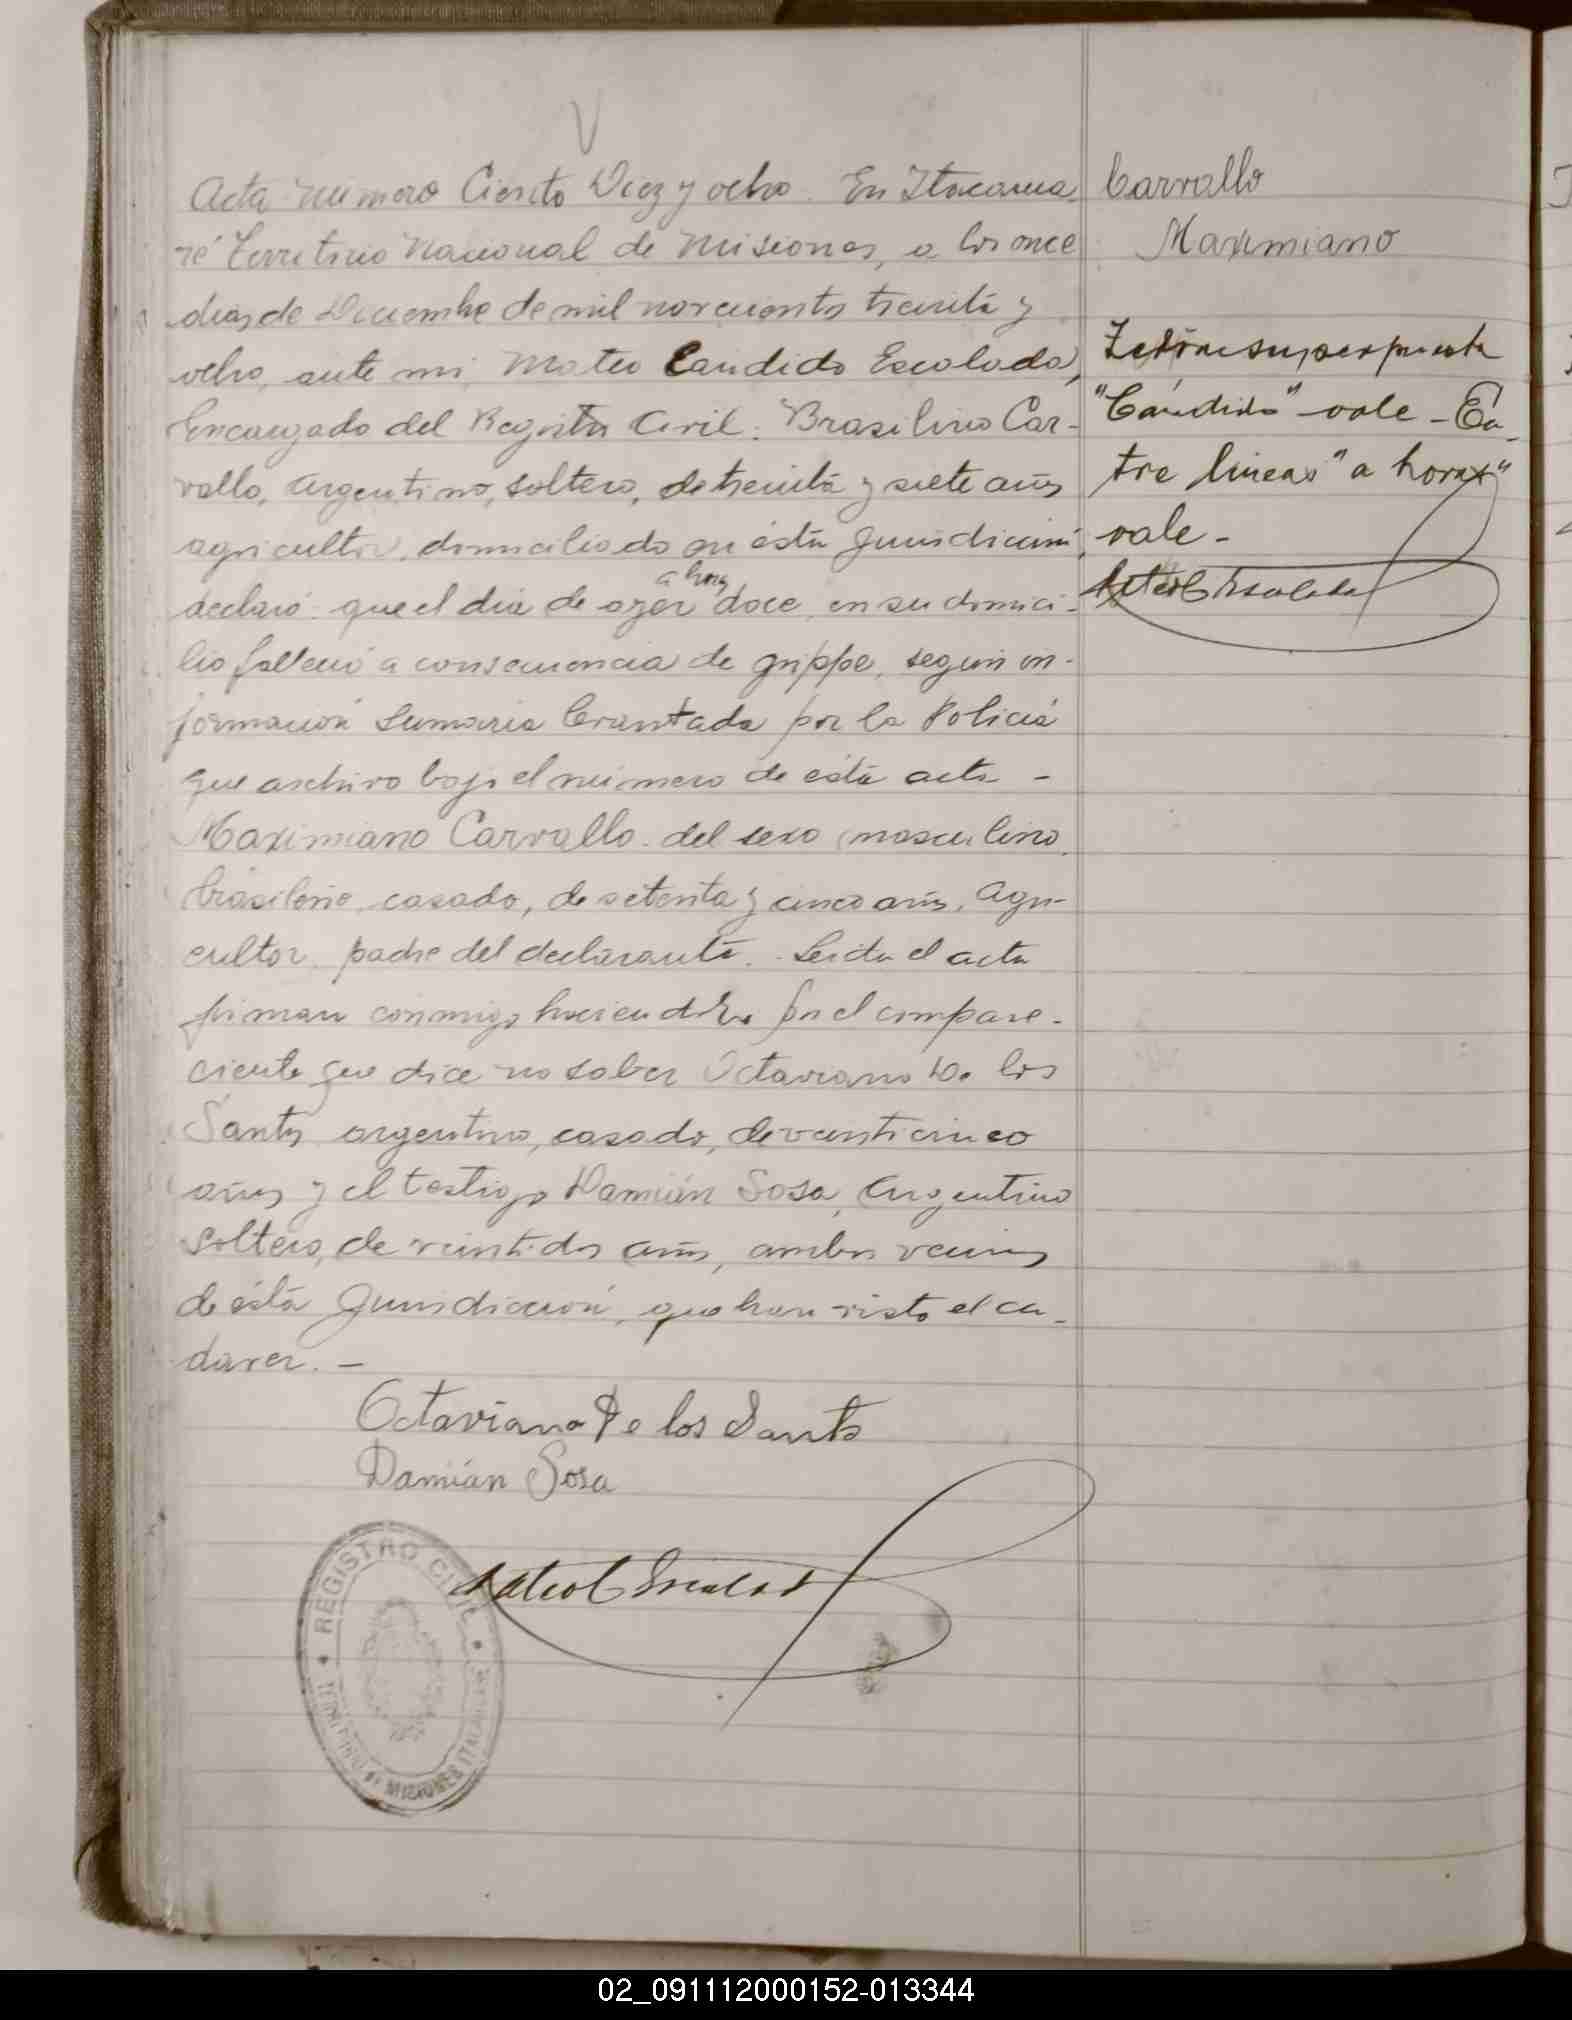 Acta número Ciento Diez y ocho. En Itacarua-
ré Territorio Nacional de Misiones, a los once
días de Diciembre de mil novecientos treinta y
ocho, ante mi, Mateo Candido Escalada,
Encargado del Registro Civil: Brasilino Car-
vallo, argentino, soltero, de treinta y siete años
agricultor, domiciliado en ésta Jurisdicción,
declaró: que el día de ayer a horas doce, en su domici-
lio falleció a consecuencia de grippe, según in-
formación Sumaria levantada por la Policía
que archivo bajo el número de ésta acta -
Maximiano Carvallo. del sexo masculino,
brasileño, casado, de setenta y cinco años, agri-
cultor, padre del declarante. - Leida el acta
firman conmigo haciendolo por el compare-
ciente que dice no saber Octaviano De los
Santos argentino, casado, de veinticinco
años y el testigo Damián Sosa, argentino
soltero, de veintidos años, ambos vecinos
de ésta Jurisdicción, que han visto el ca-
dáver. -
Octaviano De los Santos
Damián Sosa
Mateo C Escalada
REGISTRO CIVIL
TERRITORIO DE MISIONES ITACARUARE
Carvallo
Maximiano
superpuesta
"Cándido" vale - En-
tre lineas "a horas"
vale -
Mateo C Escalada
02_091112000152-013344